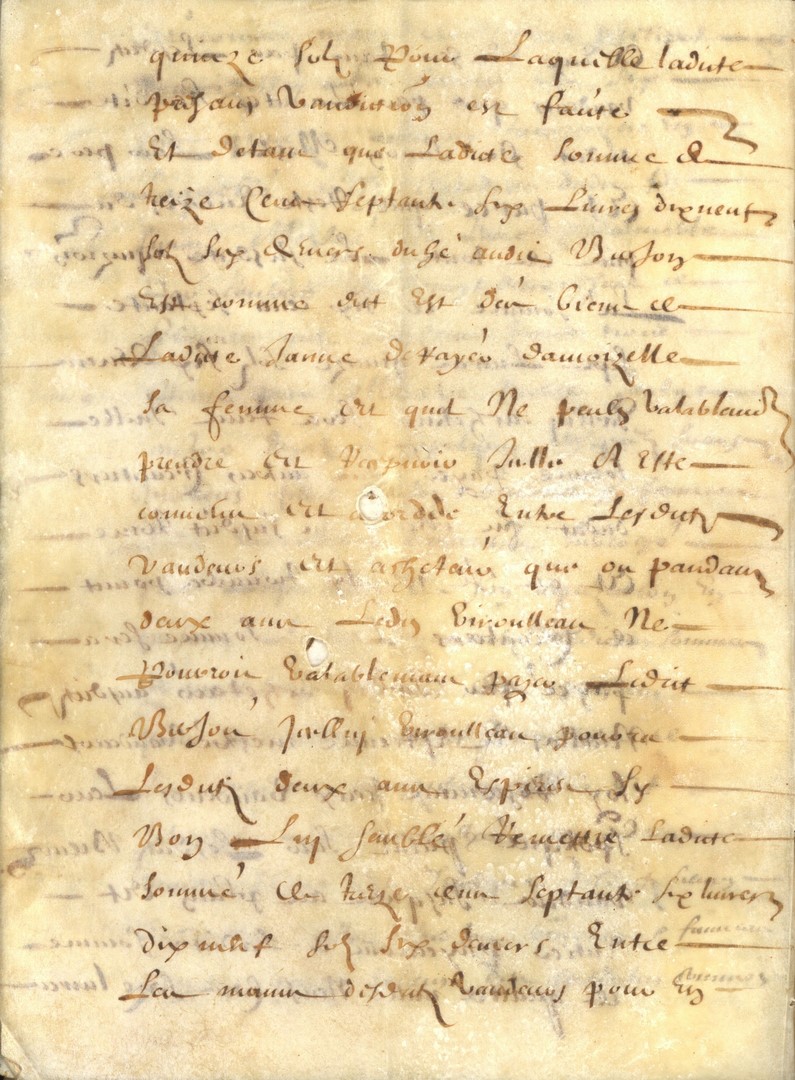 quinze solz pour Laquelle ladite
presant vandition est faite
Et detant que Ladite somme de
treize Cent septante six Livres dixneuf
solz six deniers duhe audit Busson
Est comme dit Est deu bien de
Ladite Janne de damoizelle
sa femme Et quil Ne peult valablemant
prendre Et Jcelle A Este
convenu Et accordé Entre Lesditz
vandeurs Et acheteur que ou pandant
deux ans Ledit Viroulleau Ne
Pouvroit valablemant payer Ledit
Busson Jcelluy Viroulleau poudra
Lesditz deux ans Expirés sy
Bon Luy samble Remettre Ladite
somme de treze cent septante six livres
dix neuf solz six deniers Entre
Les mains desditz vandeurs pour En